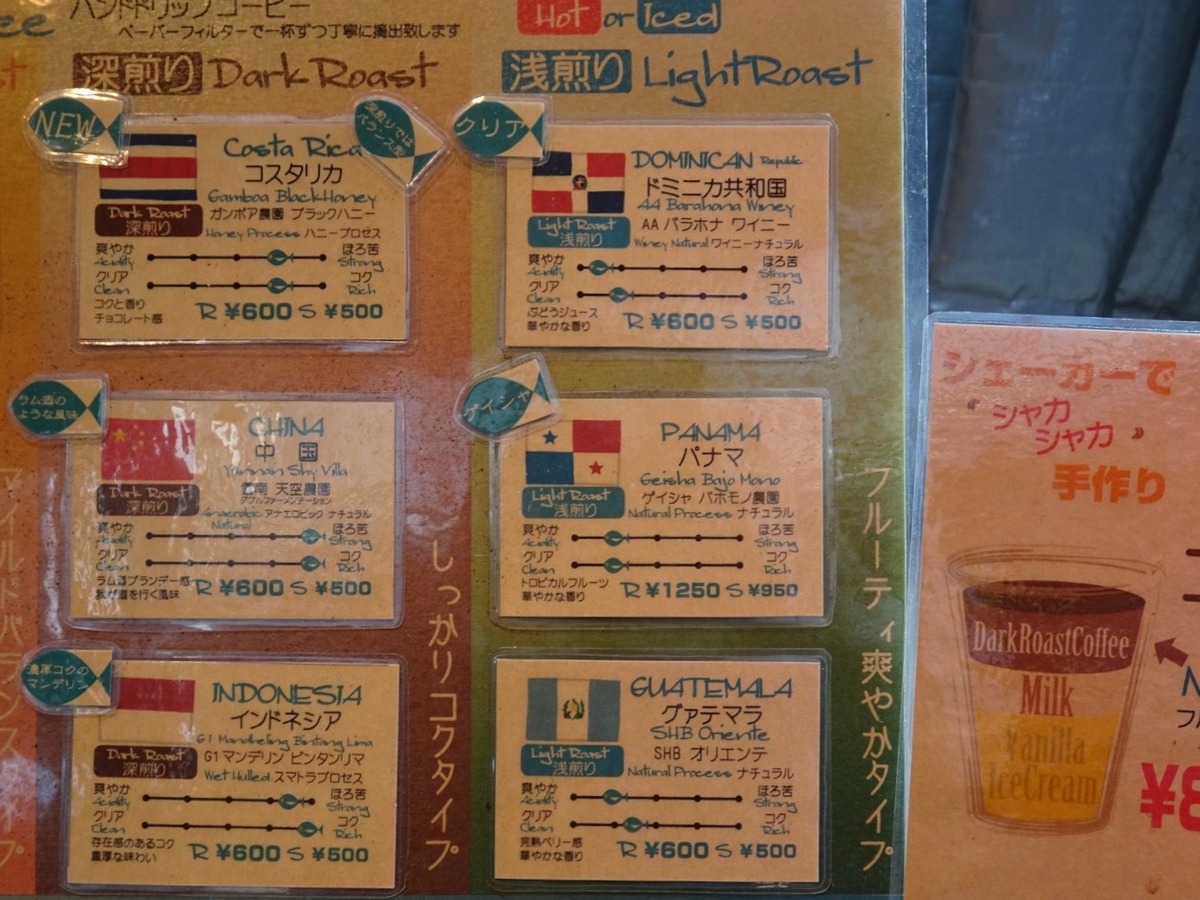 ハンドドリップ コーヒー
ペーパーフィルターで一杯ずつ丁寧に摘出致します
深煎り Dark Roast
NEW
深煎りでは
バランス型
Costa Rica
コスタリカ
Gamboa Black Honey
ガンボア農園 ブラックハニー
Honey Process ハニープロセス
Dark Roast
深煎り
爽やか ほろ苦
Acidity Strong
クリア コク
Clean Rich
コクと香り
チョコレート感
R ¥600 S ¥500
ラム酒の
ような風味
CHINA
中 国
Yunnan Sky Villa
雲南 天空農園
ダブルファーメンテーション
Anaerobic アナエロビック ナチュラル
Natural
Dark Roast
深煎り
爽やか ほろ苦
Acidity Strong
クリア コク
Clean Rich
ラム酒ブランデー感
我が道を行く風味
R ¥600 S ¥500
濃厚コクの
マンデリン
INDONESIA
インドネシア
G1 Mandheling Bintang Lima
G1 マンデリン ビンタンリマ
Wet Hulled スマトラプロセス
Dark Roast
深煎り
爽やか ほろ苦
Acidity Strong
クリア コク
Clean Rich
存在感のあるコク
重厚な味わい
R ¥600 S ¥500
しっかりコクタイプ
Hot or Iced
浅煎り Light Roast
クリア
DOMINICAN Republic
ドミニカ共和国
AA Barahona Winey
AA バラホナ ワイニー
Winey Natural ワイニーナチュラル
Light Roast
浅煎り
爽やか ほろ苦
Acidity Strong
クリア コク
Clean Rich
ぶどうジュース
華やかな香り
R ¥600 S ¥500
ゲイシャ
PANAMA
パナマ
Geisha Bajo Mono
ゲイシャ バホモノ農園
Natural Process ナチュラル
Light Roast
浅煎り
爽やか ほろ苦
Acidity Strong
クリア コク
Clean Rich
トロピカルフルーツ
華やかな香り
R ¥1250 S ¥950
GUATEMALA
グァテマラ
SHB Oriente
SHB オリエンテ
Natural Process ナチュラル
Light Roast
浅煎り
爽やか ほろ苦
Acidity Strong
クリア コク
Clean Rich
完熟ベリー感
華やかな香り
R ¥600 S ¥500
フルーティ爽やかタイプ
シェーカーで
"シャカ
シャカ"
手作り
DarkRoastCoffee
Milk
Vanilla
IceCream
¥8